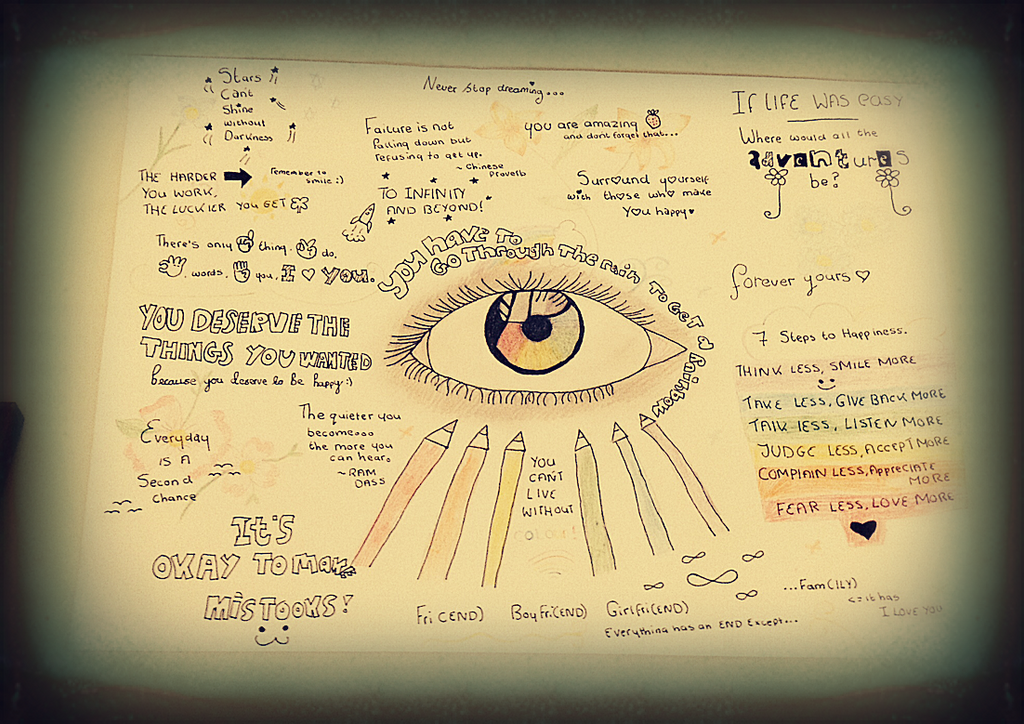 Stars
Can't
Shine
without
Darkness
Never Stop dreaming...
IF LIFE WAS easy
Where would all the
adventures
be?
Failure is not
Falling down but
refusing to get up.
~ Chinese
Proverb
you are amazing
and dont forget that...
THE HARDER
YOU WORK,
THE LUCKIER YOU GET
Remember to
smile :)
TO INFINITY
AND BEYOND!
Surround yourself
with those who make
You happy
There's only thing. do.
words. you, I ♥ YOU.
You HAVE To
Go Through The rain To Get a Rainbow
forever yours ♡
YOU DESERVE THE
THINGS YOU WANTED
because you deserve to be happy :)
7 Steps to Happiness.
THINK LESS, SMILE MORE
TAKE LESS, GIVE BACK MORE
TALK LESS, LISTEN MORE
JUDGE LESS, ACCEPT MORE
COMPLAIN LESS, Appreciate
MORE
FEAR LESS, LOVE MORE
Everyday
IS A
Second
chance
The quieter you
become....
the more you
can hear.
~ RAM
DASS
YOU
CAN'T
LIVE
WITHOUT
COLOUR!
It's
OKAY TO Make
MISTOOKS!
Fri(END) BoyFri(END) Girlfri(END)
Everything has an END Except...
...Fam(ILY)
<= it has
I LOVE YOU